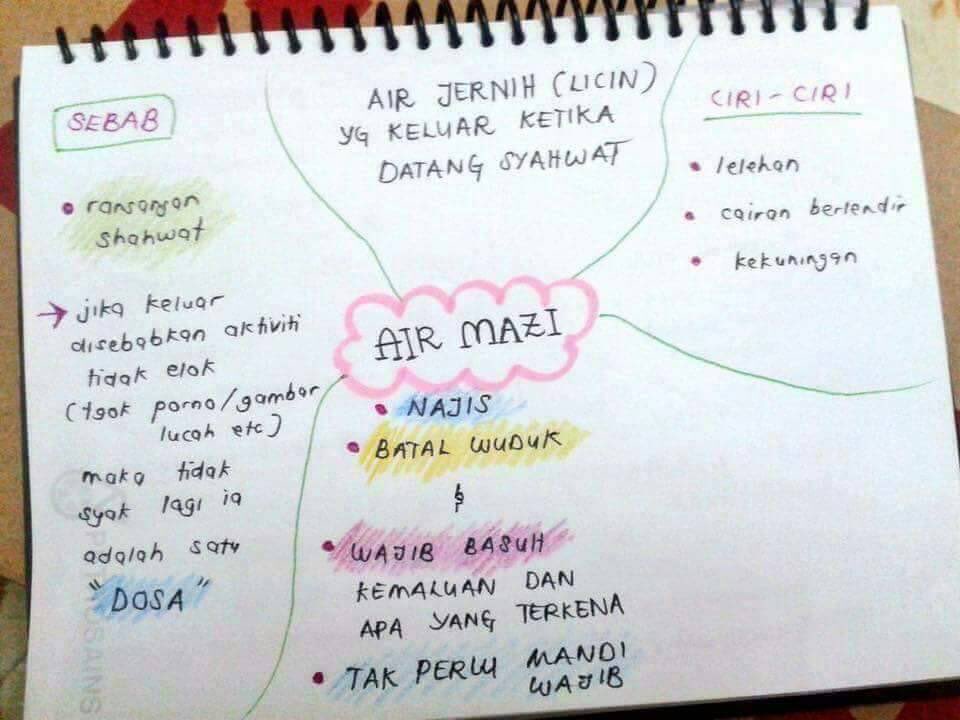 SEBAB
• ransangan
shahwat
→ jika keluar
disebabkan aktiviti
tidak elok
(tgok porno/gambar
lucah etc)
maka tidak
syak lagi ia
adalah satu
"DOSA"
AIR JERNIH (LICIN)
YG KELUAR KETIKA
DATANG SYAHWAT
CIRI - CIRI
• lelehan
• cairan berlendir
• kekuningan
AIR MAZI
• NAJIS
• BATAL WUDUK
&
• WAJIB BASUH
KEMALUAN DAN
APA YANG TERKENA
• TAK PERLU MANDI
WAJIB
OSAINS